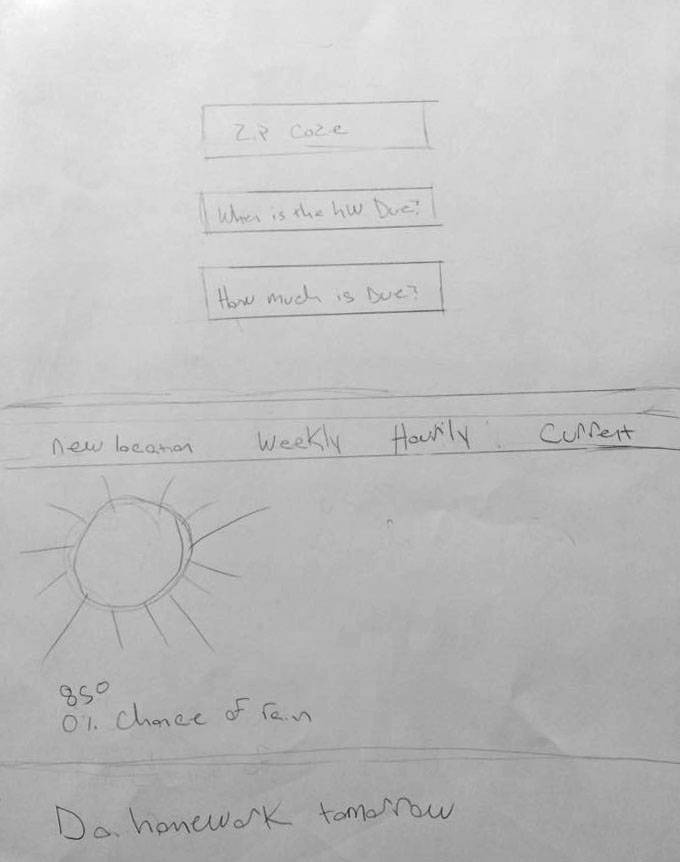 Zip Code
When is the HW Due?
How much is Due?
New location Weekly Hourly Current
85°
0% Chance of rain
Do homework tomorrow